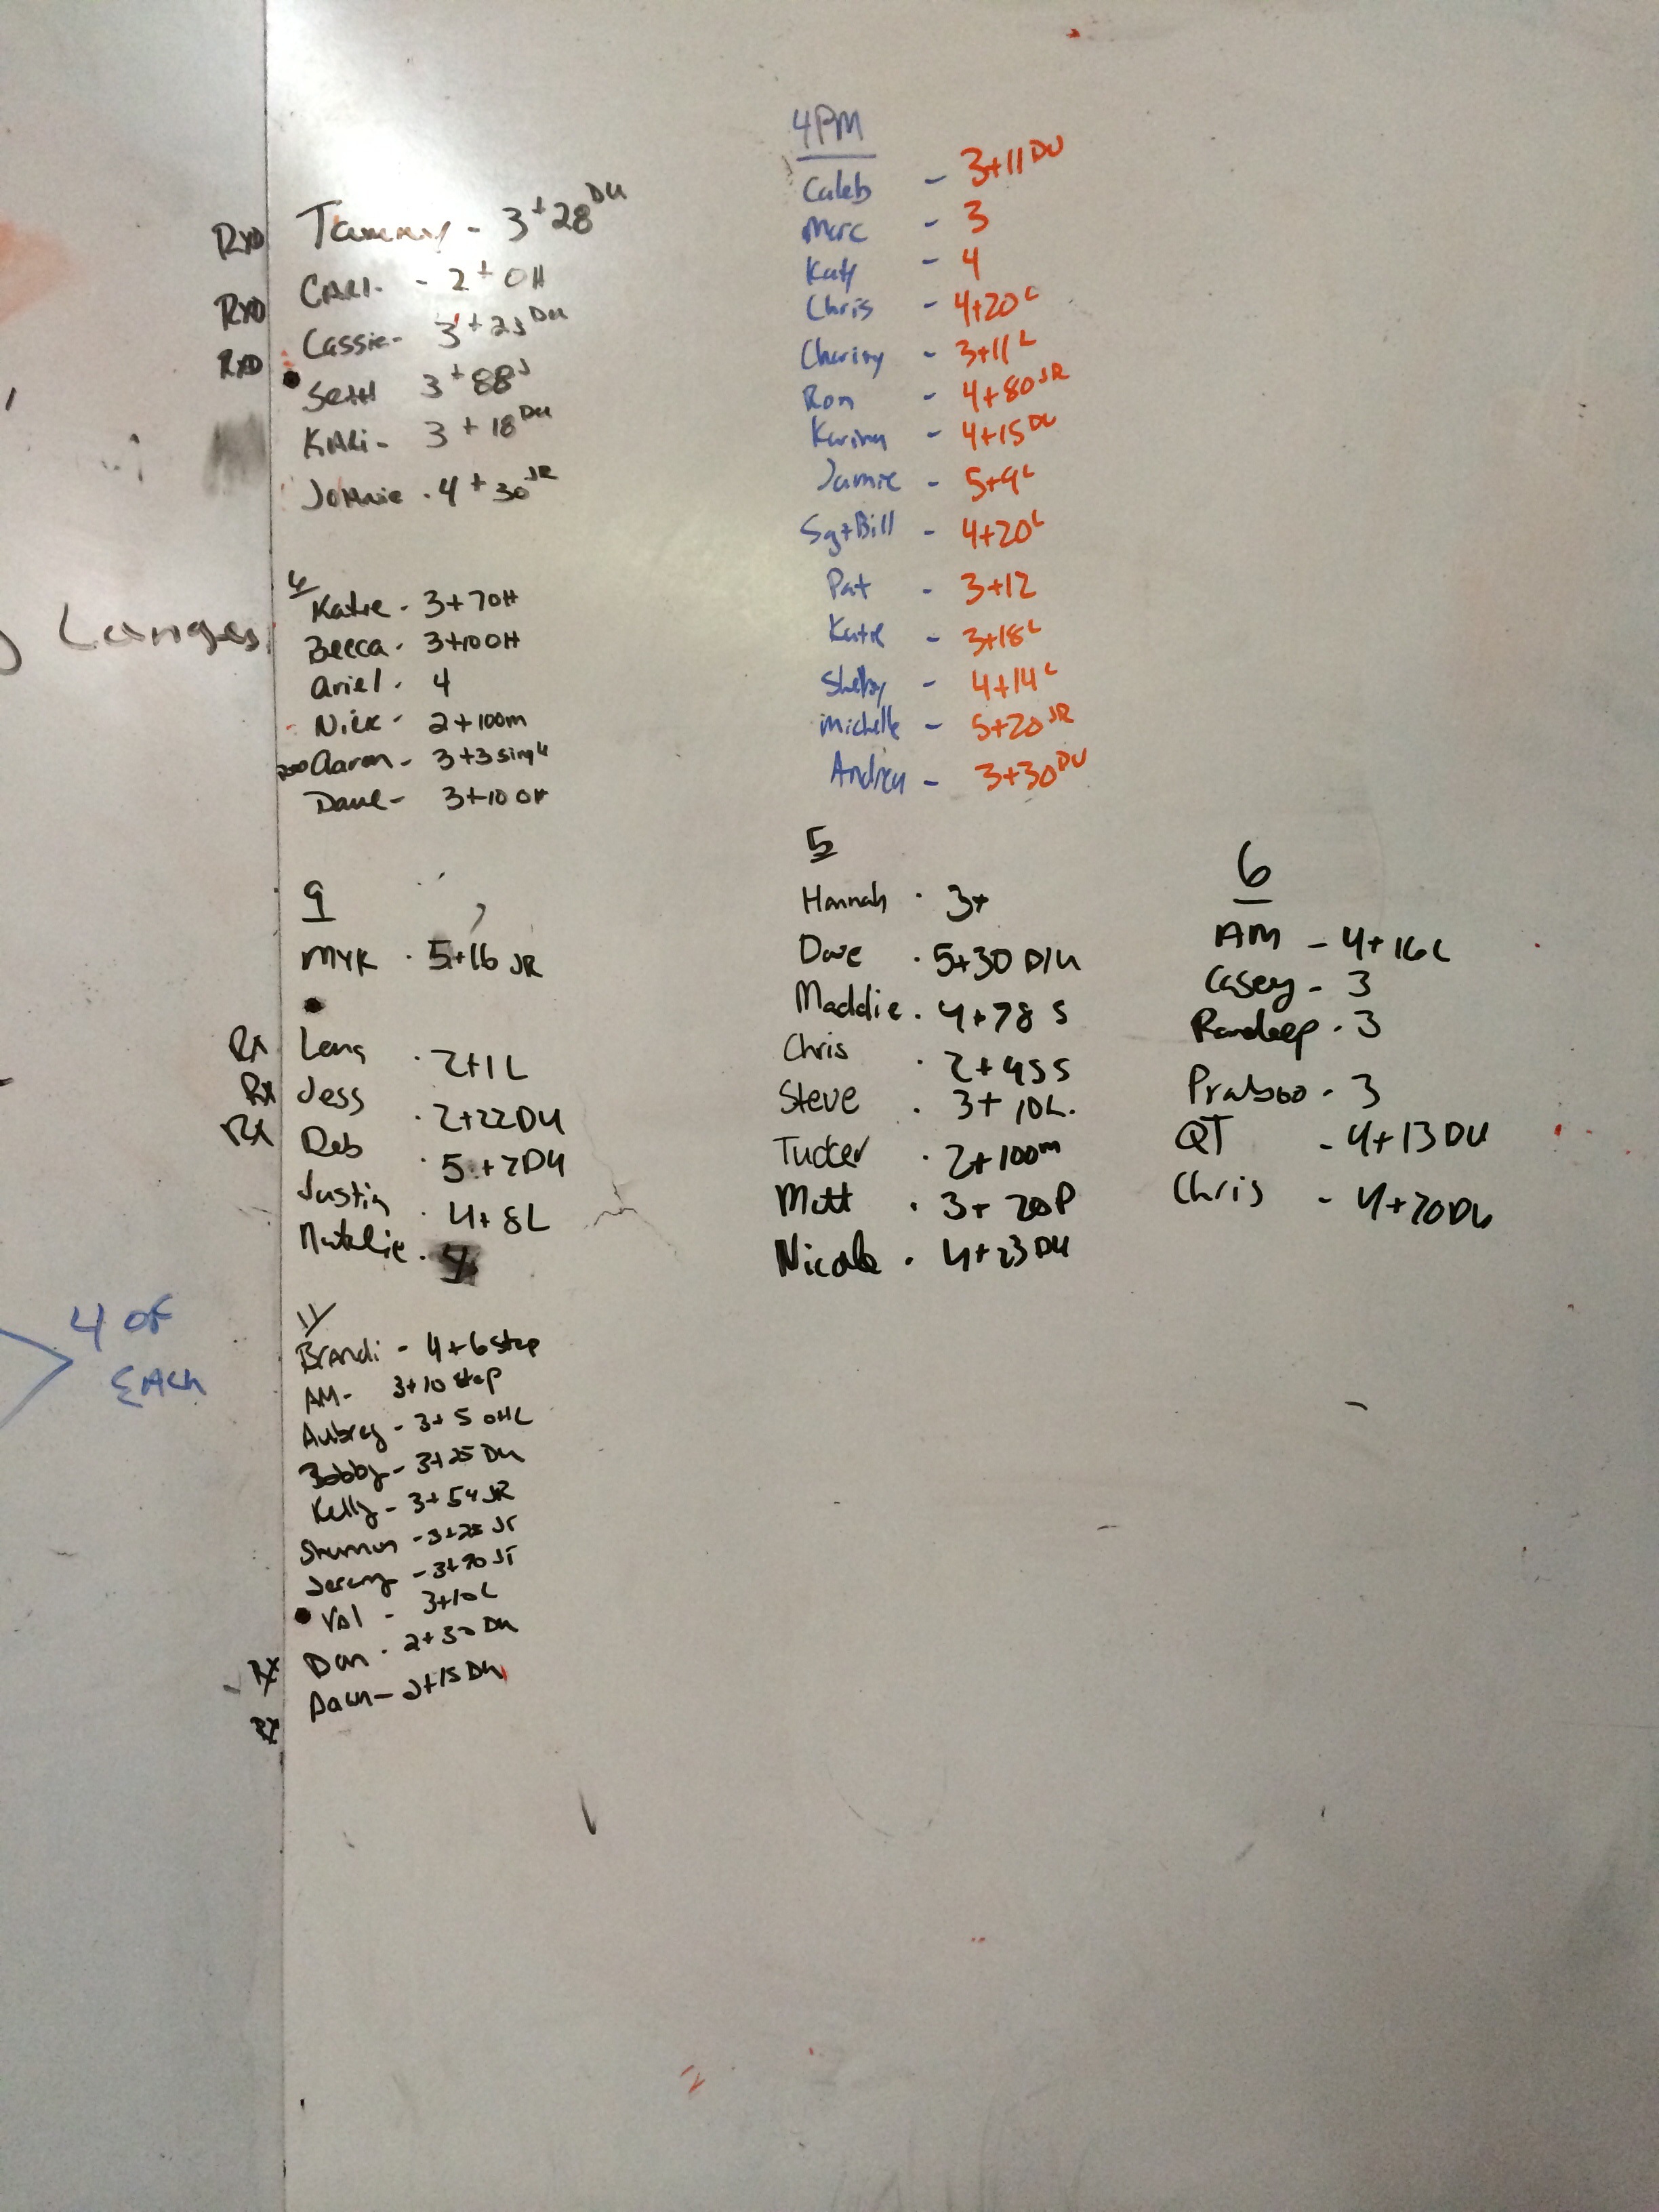 RXD Tammy - 3+28 DU
RXD CARI - 2+OH
RXD Cassie - 3+25 DU
Seth 3+88 J
KARi - 3+18 DU
JOHNie - 4+30 JR
Lunges
6
Katie - 3+7OH
Becca - 3+10OH
Ariel - 4
Nick - 2+100m
Aaron - 3+3 single
Dave - 3+10 OH
9
MYK - 5+16 JR
Rx Lena - 2+1L
Rx Jess - 2+22DU
Rx Deb - 5+7DU
Justin - 4+8L
Natalie - 4
4 OF
EACH
11
Brandi - 4+6 step
AM - 3+10 step
Aubrey - 3+5 OHL
Bobby - 3+25 DU
Kelly - 3+54 JR
Shannon - 3+25 JR
Jeremy - 3+70 JR
Val - 3+10L
Rx Dan - 2+30 DU
Rx Dawn - 2+15 DU
4PM
Caleb - 3+11 DU
Marc - 3
Katy - 4
Chris - 4+20 L
Charity - 3+11 L
Ron - 4+80 JR
Karina - 4+15 DU
Jamie - 5+9 L
Sgt Bill - 4+20 L
Pat - 3+12
Katie - 3+18 L
Shelby - 4+14 L
Michelle - 5+20 JR
Andrew - 3+30 DU
5
Hannah - 3+
Dave - 5+30 D/U
Maddie - 4+78 S
Chris - 2+45 S
Steve - 3+10L.
Tucker - 2+100m
Matt - 3+20P
Nicole - 4+23 DU
6
AM - 4+16L
Casey - 3
Randeep - 3
Praboo - 3
QT - 4+13 DU
Chris - 4+70 DU